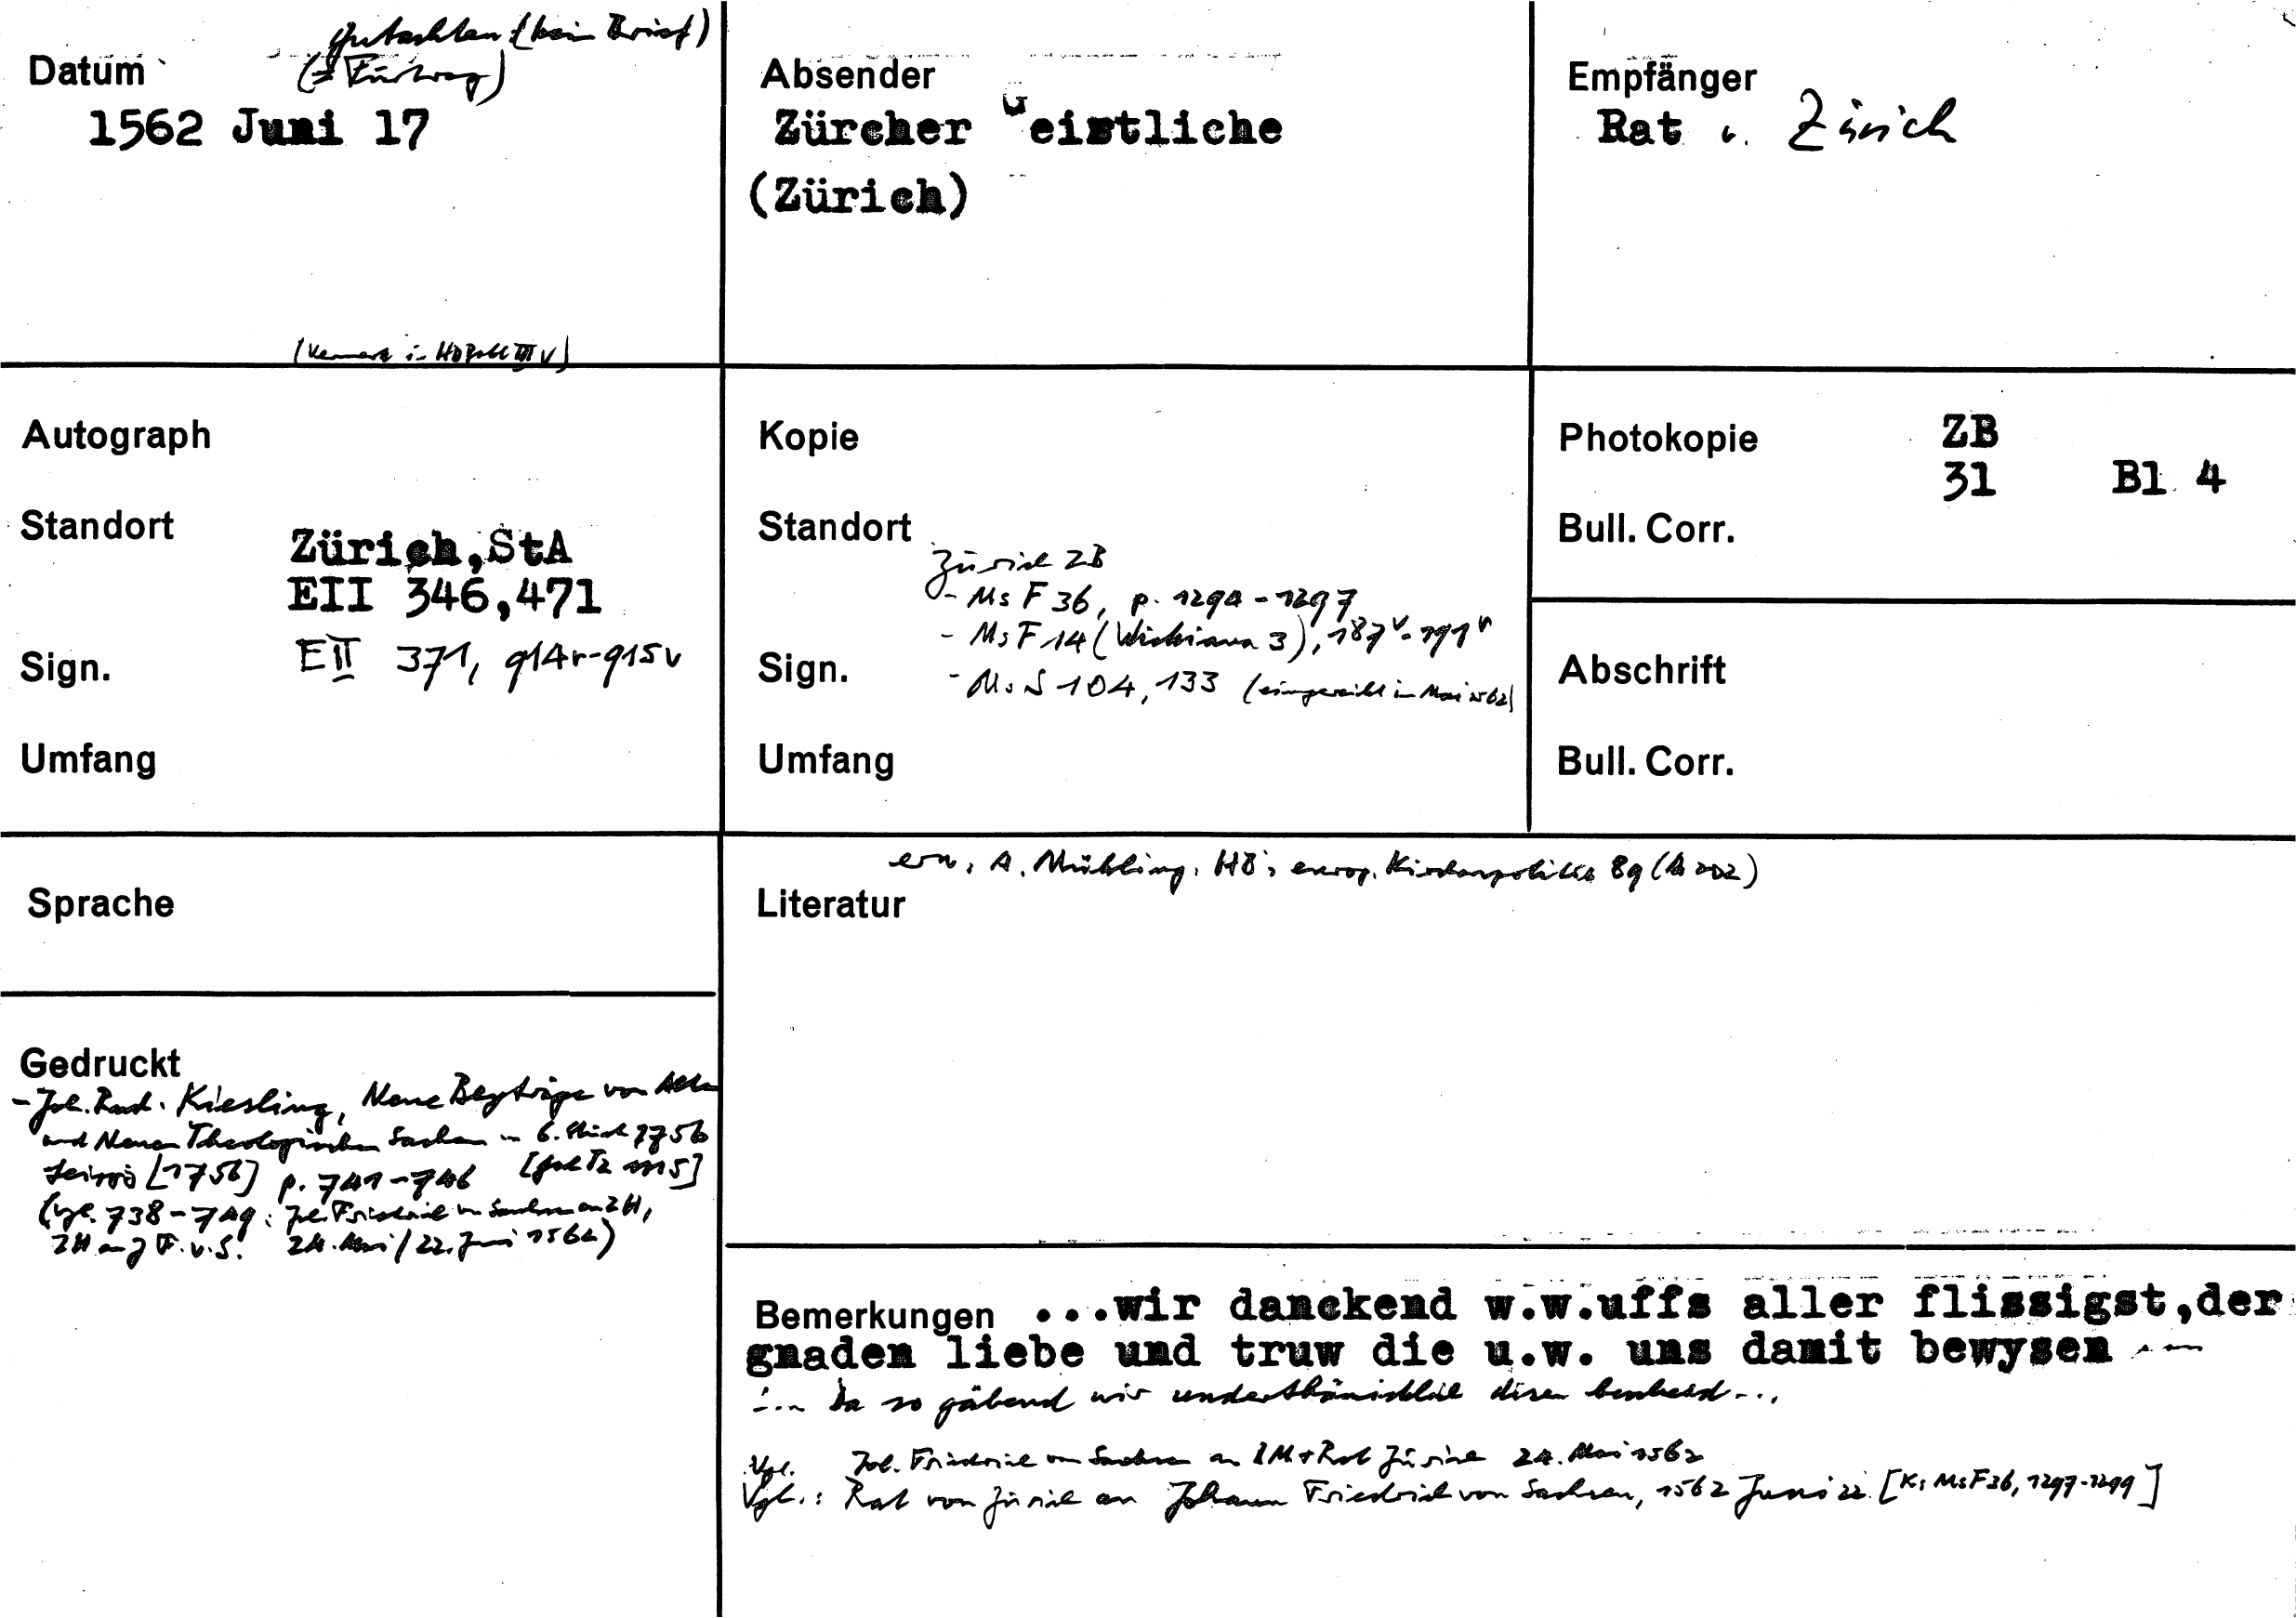 Gutachten (kein Brief)
(= Fürtrag)
Datum
1562 Juni 17
(Vermerk in HBBibl III V)
Absender
Zürcher Geistliche
(Zürich)
Empfänger
Rat v. Zürich
Autograph
Standort
Zürich,StA
EII 346,471
Sign.
EII 371, 914r-915v
Umfang
Kopie
Standort
Zürich ZB
- Ms F 36, p. 1294-1297
- Ms F 14 (Wickiana 3), 187v-191v
Sign.
- Ms S 104, 133 (eingereiht in Mai 1562)
Umfang
Photokopie
ZB
31 Bl 4
Bull. Corr.
Abschrift
Bull. Corr.
Sprache
erw. A. Mühling, HB's europ. Kirchenpolitik 89 (A 202)
Literatur
Gedruckt
- Joh. Rud. Kiesling, Neue Beyträge von Alten
und Neuen Theologischen Sachen 6. Stück 1756
Leipzig [1756] p. 741-746
(vgl. 738-749: Joh. Friedrich v. Sachsen an ZH,
ZH an J.F.v.S. 24. Mai / 22. Juni 1562)
Bemerkungen ...wir danckend w.w.uffs aller flissigst,der
gnaden liebe und truw die u.w. uns damit bewysen ...
... Da so gäbend wir underthänicklich disen bescheid...
Vgl. Joh. Friedrich von Sachsen an BM+Rat Zürich 24. Mai 1562
Vgl.: Rat von Zürich an Johann Friedrich von Sachsen, 1562 Juni 22. [K: Ms F 36, 1297-1299]